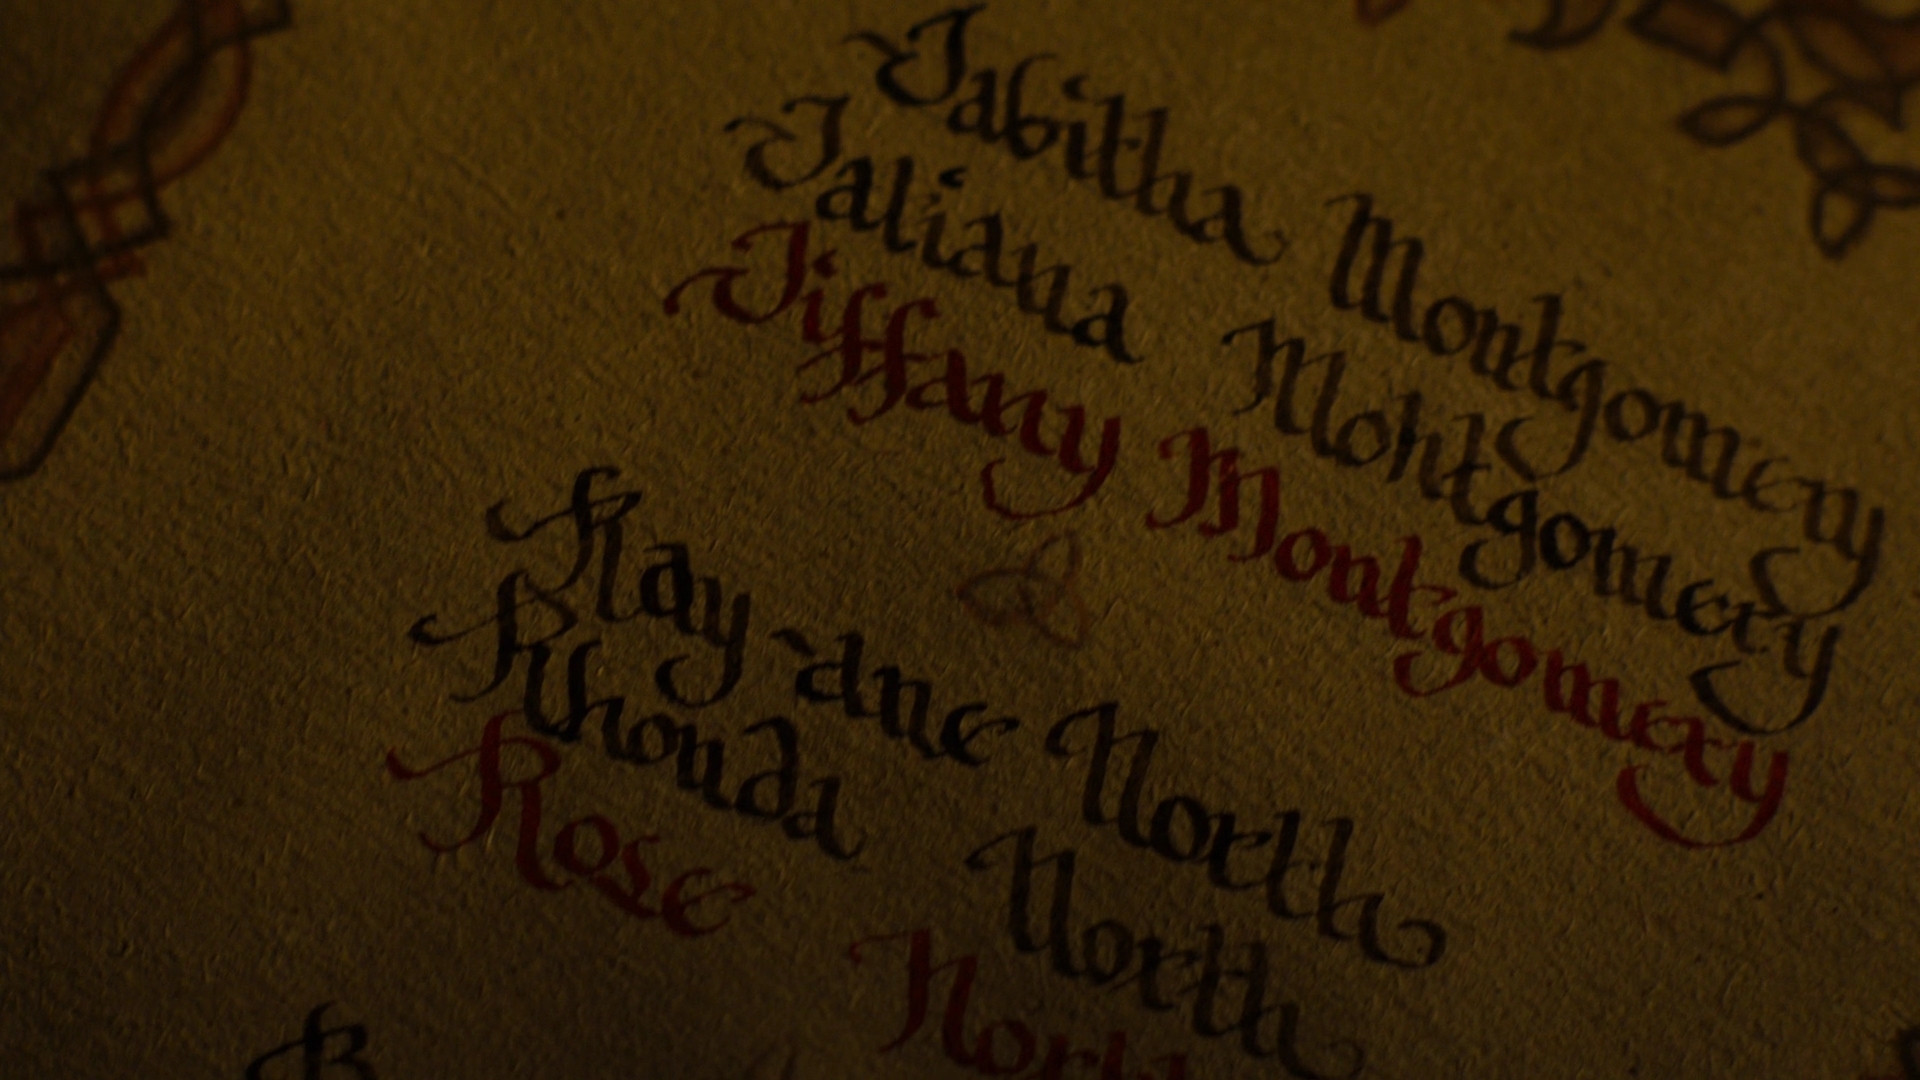 Tabitha Montgomery
Taliana Montgomery
Tiffany Montgomery
Ray'ane North
Rhonda North
Rose North